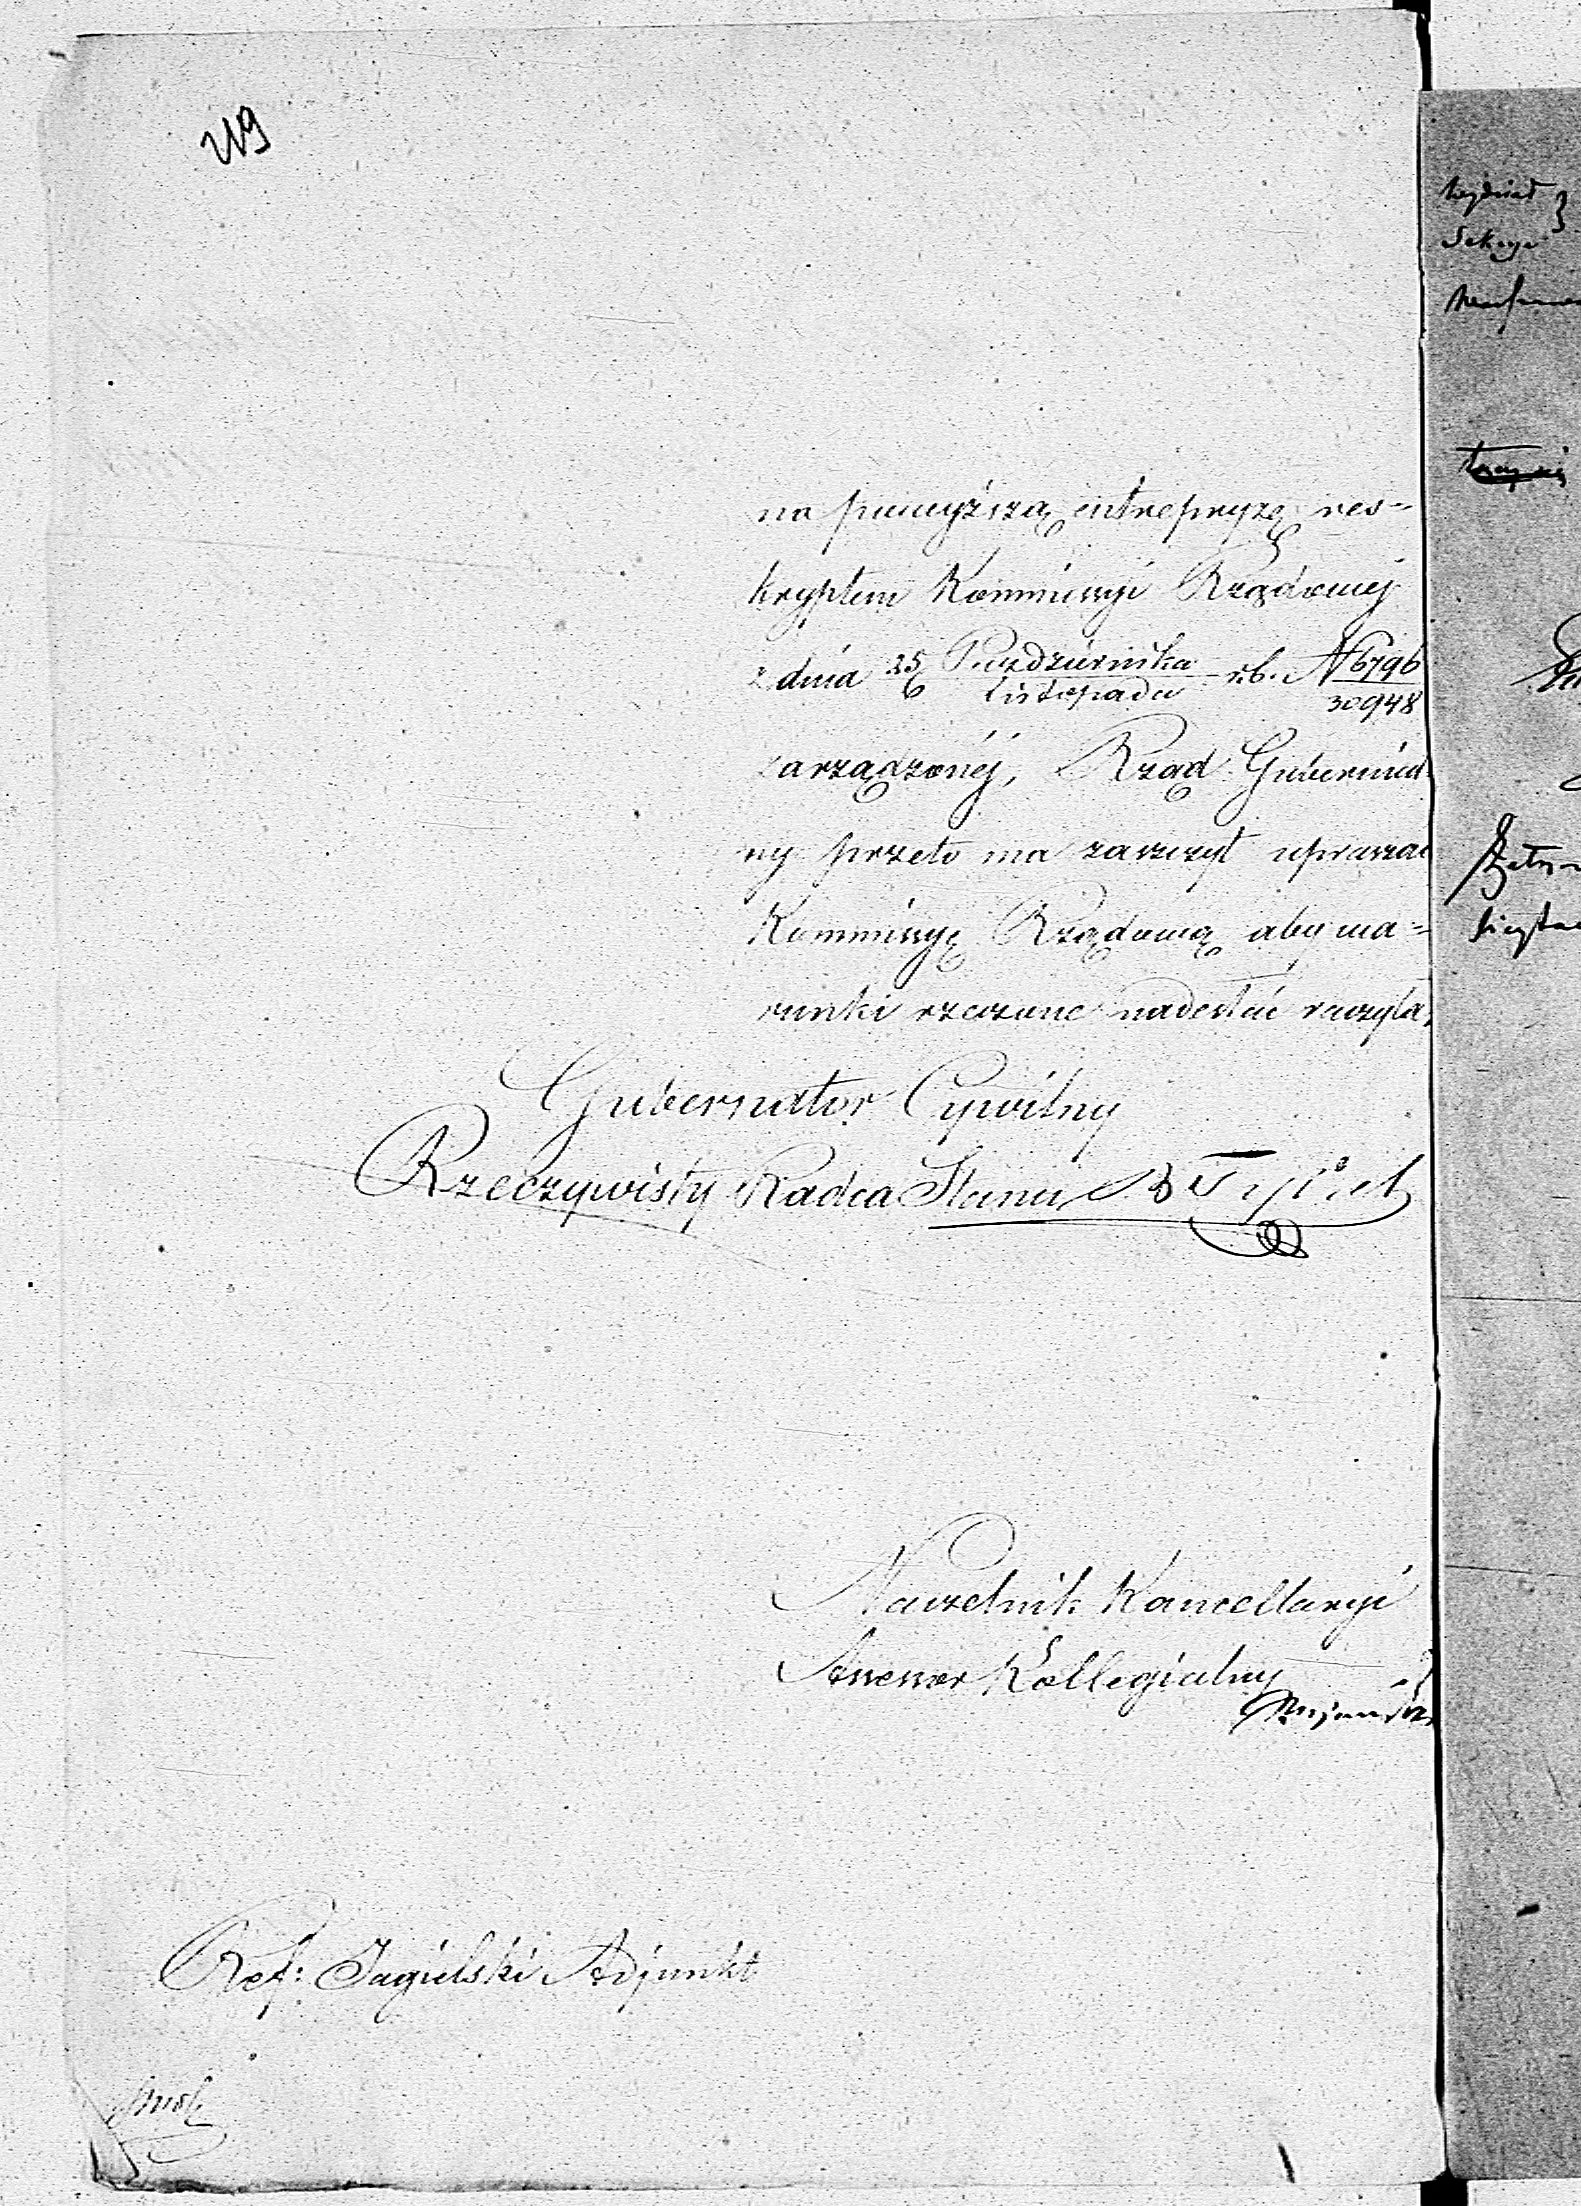 219
na powyższą entrepryzę res-
kryptem Kommissyi Rządowej
z dnia 25/6 Października/Listopada r.b. N 6796/30948
zarządzonéj, Rząd Gubernial-
ny przeto ma zaszczyt upraszać
Kommissyę Rządową aby wa=
runki rzeczone nadesłać raczyła.
Gubernator Cywilny
Rzeczywisty Radca Stanu
Naczelnik Kancellaryi
Assessor Kollegialny
Ref: Jagielski Adjunkt
Wydział
Sekcya